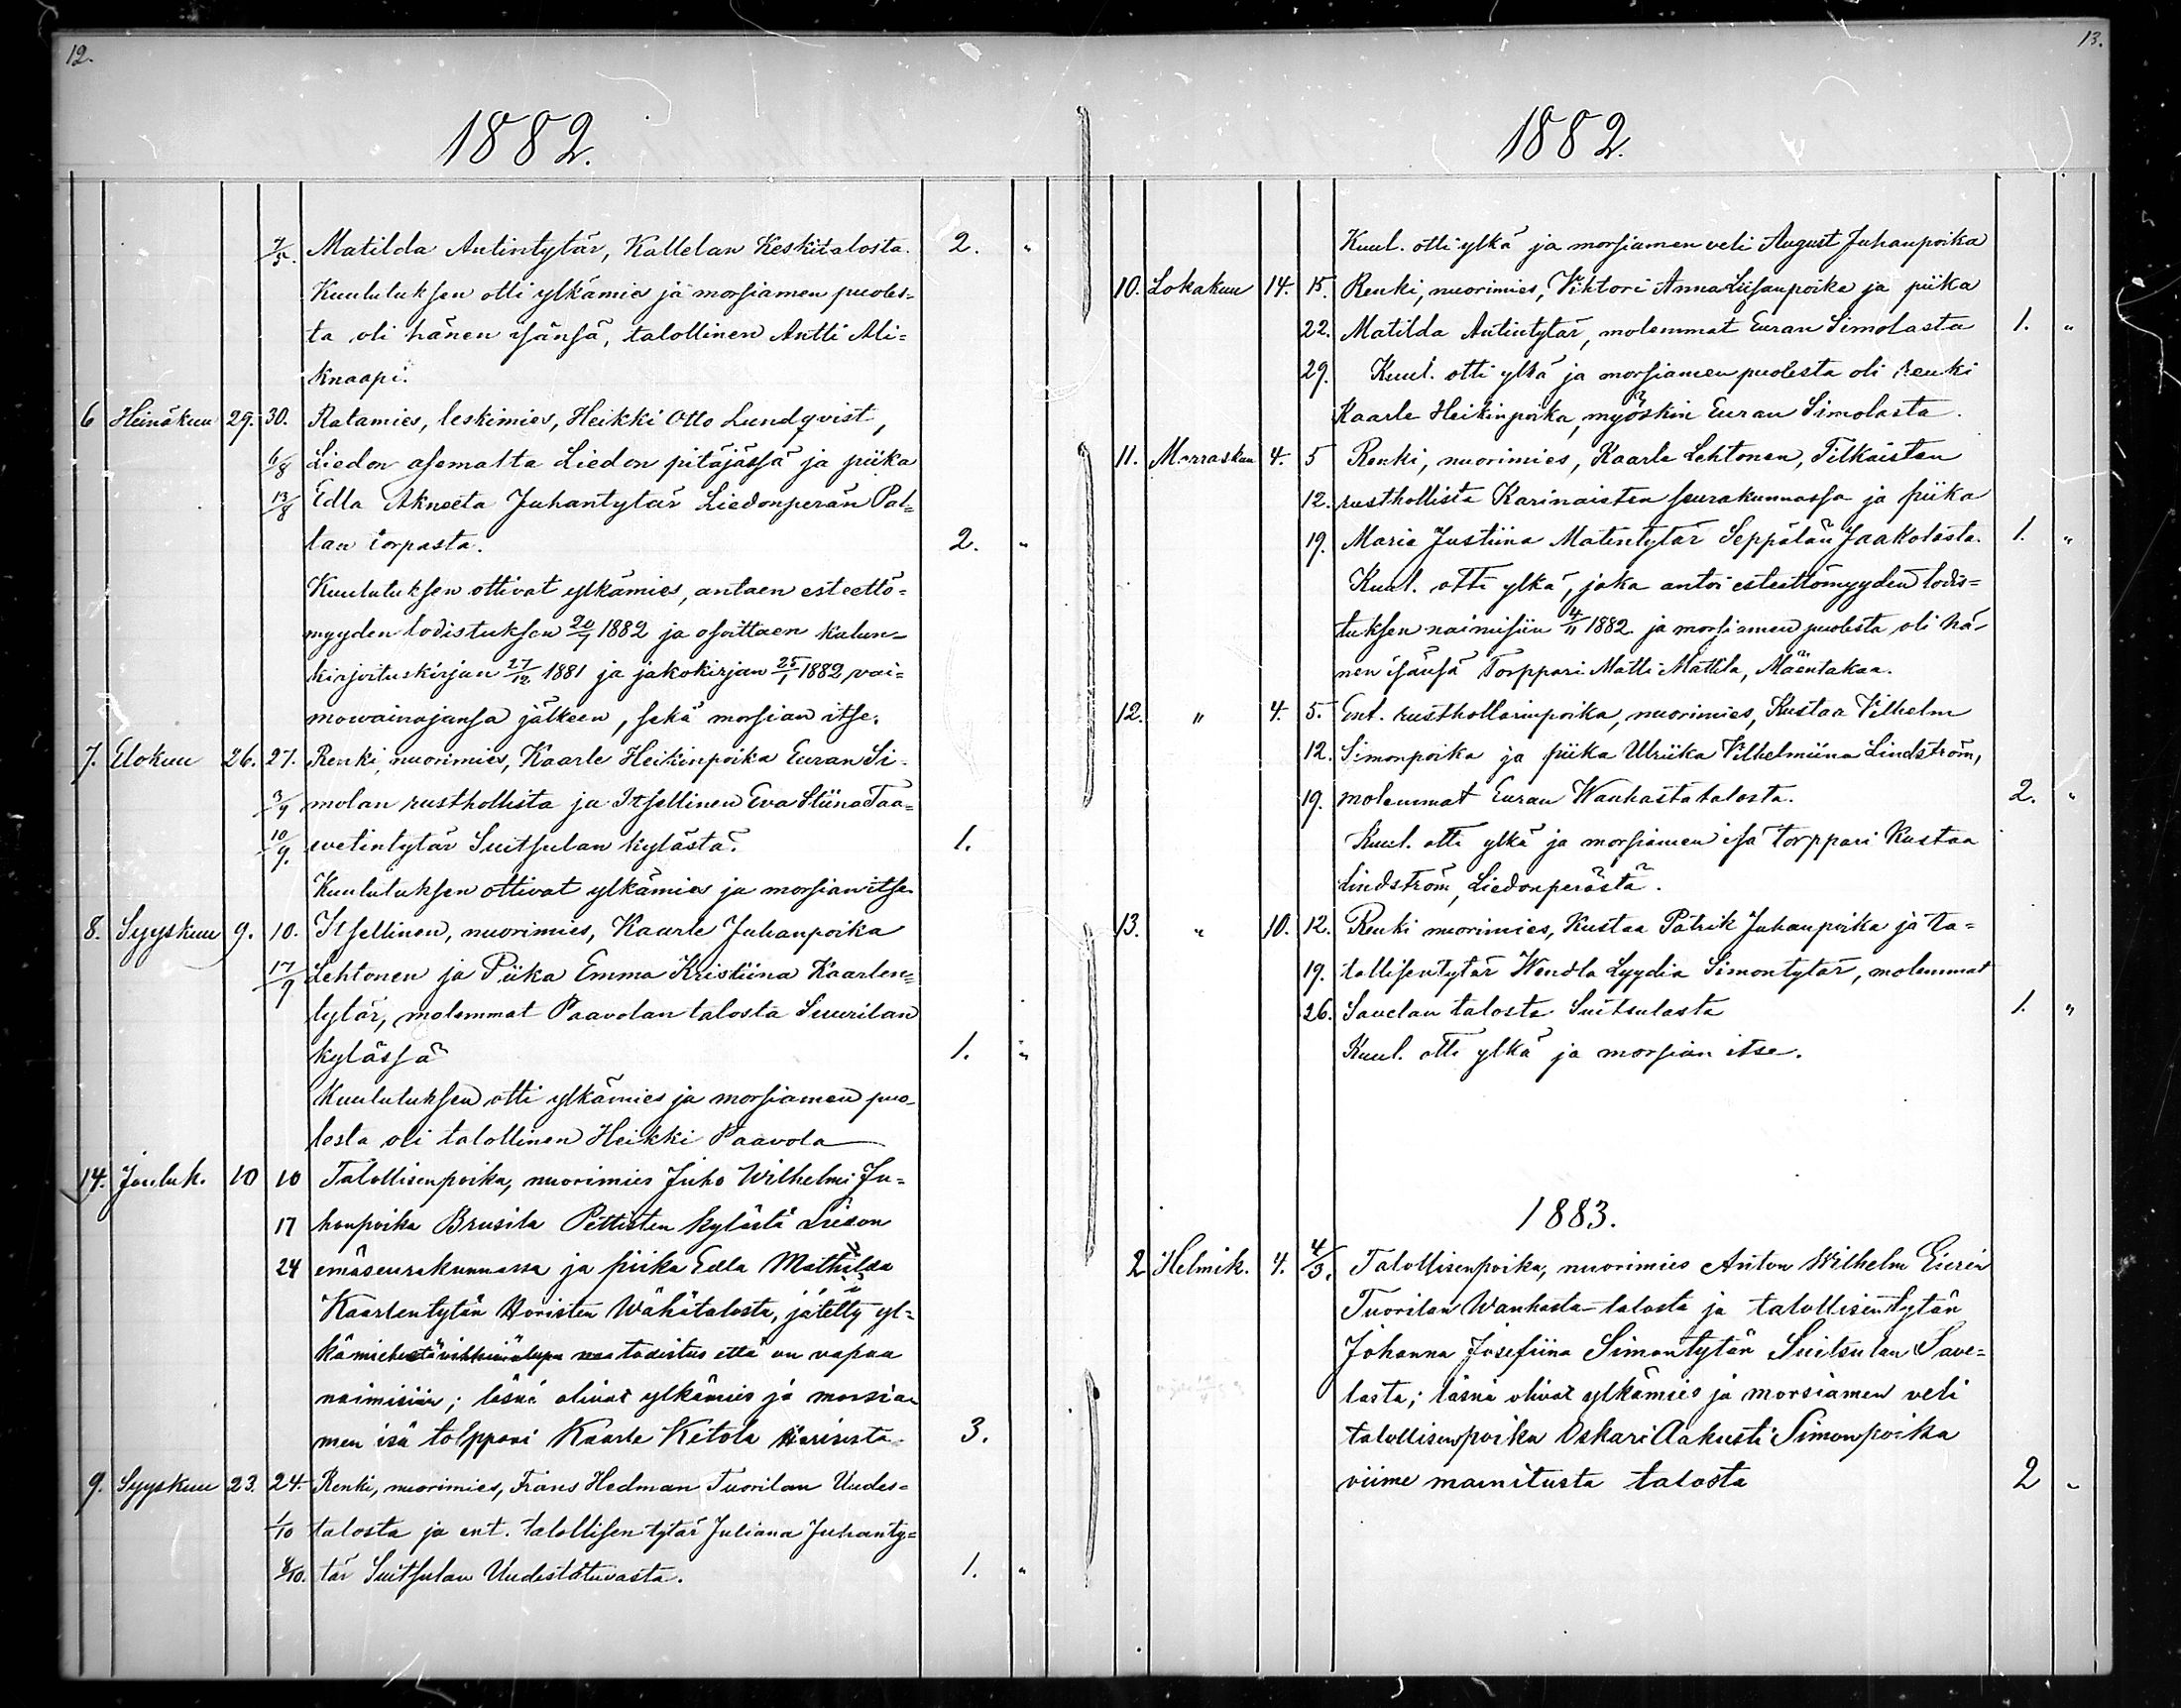 12.
1882.
7/5. Matilda Antintytär, Kallelan Keskitalosta. 2. "
Kuulutuksen otti ylkämies ja morsiamen puoles=
ta oli hänen isänsä, talollinen Antti Ali=
Knaapi.
6 Heinäkuu 29. 30. Ratamies, leskimies, Heikki Otto Lundqvist,
6/8 Liedon asemalta Liedon pitäjässä ja piika
13/8 Edla Akneeta Juhantytär Liedonperän Pal=
lan torpasta. 2. "
Kuulutuksen ottivat ylkämies, antaen esteettö=
myyden todistuksen 20/7 1882 ja osoittaen kalun=
kirjoituskirjan 27/12 1881 ja jakokirjan 25/1 1882 vai=
mowainajansa jälkeen, sekä morsian itse.
7. Elokuu 26. 27. Renki, nuorimies, Kaarle Heikinpoika Euran Si=
3/9 molan rusthollista ja Itsellinen Eva Stiina Taa=
10/9. wetintytär Suitsulan kylästä. 1.
Kuulutuksen ottivat ylkämies ja morsian itse.
8. Syyskuu 9. 10. Itsellinen, nuorimies, Kaarle Juhanpoika
17/9 Lehtonen ja Piika Emma Kristiina Kaarlen=
tytär, molemmat Paavolan talosta Suurilan
kylässä 1. "
Kuulutuksen otti ylkämies ja morsiamen puo=
lesta oli talollinen Heikki Paavola
14. Jouluk. 10 10 Talollisenpoika, nuorimies Juho Wilhelmi Ju=
17 honpoika Brusila Pettisten kylästä Liedon
24 emäseurakunnassa ja piika Edla Mathilda
Kaarlentytär Horisten Wähätalosta, jätetty yl=
kämiehestä todistus että on vapaa
naimisiin; läsnä olivat ylkämies ja morsia=
men isä torppari Kaarle Ketola Horisista. 3.
9. Syyskuu 23. 24. Renki, nuorimies, Frans Hedman Tuorilan Uudes=
1/10 talosta ja ent. talollisen tytär Juliana Juhanty=
8/10. tär Suitsulan Uudestatuvasta. 1. "
13.
1882.
Kuul. otti ylkä ja morsiamen veli August Juhanpoika
10. Lokakuu 14. 15. Renki, nuorimies, Vihtori Anna Liisanpoika ja piika
22. Matilda Antintytär, molemmat Euran Simolasta 1. "
29. Kuul. otti ylkä ja morsiamen puolesta oli renki
Kaarle Heikinpoika, myöskin Euran Simolasta.
11. Marraskuu 4. 5 Renki, nuorimies, Kaarle Lehtonen, Tilkaisten
12. rusthollista Karinaisten seurakunnassa ja piika
19. Maria Justiina Matintytär Seppälän Jaakolasta. 1. "
Kuul. otti ylkä, joka antoi esteettömyyden todis=
tuksen naimisiin 4/11 1882. ja morsiamen puolesta oli hä=
nen isänsä Torppari Matti Mattila, Mäentakaa.
12. " 4. 5. Ent. rusthollarinpoika, nuorimies, Kustaa Vilhelm
12. Simonpoika ja piika Ulriika Vilhelmiina Lindström,
19. molemmat Euran Wanhastatalosta. 2. "
Kuul. otti ylkä ja morsiamen isä torppari Kustaa
Lindström, Liedonperästä.
13. " 10. 12. Renki nuorimies, Kustaa Patrik Juhanpoika ja ta=
19. lollisentytär Wendla Lyydia Simontytär, molemmat
26. Savelan talosta Suitsulasta 1. "
Kuul. otti ylkä ja morsian itse.
1883.
2 Helmik. 4. 4/3. Talollisenpoika, nuorimies Anton Wilhelm
Tuorilan Wanhasta-talosta ja talollisen tytär
Johanna Josefiina Simontytär Suitsulan Save=
lasta; läsnä olivat ylkämies ja morsiamen veli
talollisenpoika Oskari Aakusti Simonpoika
viime mainitusta talosta 2 "